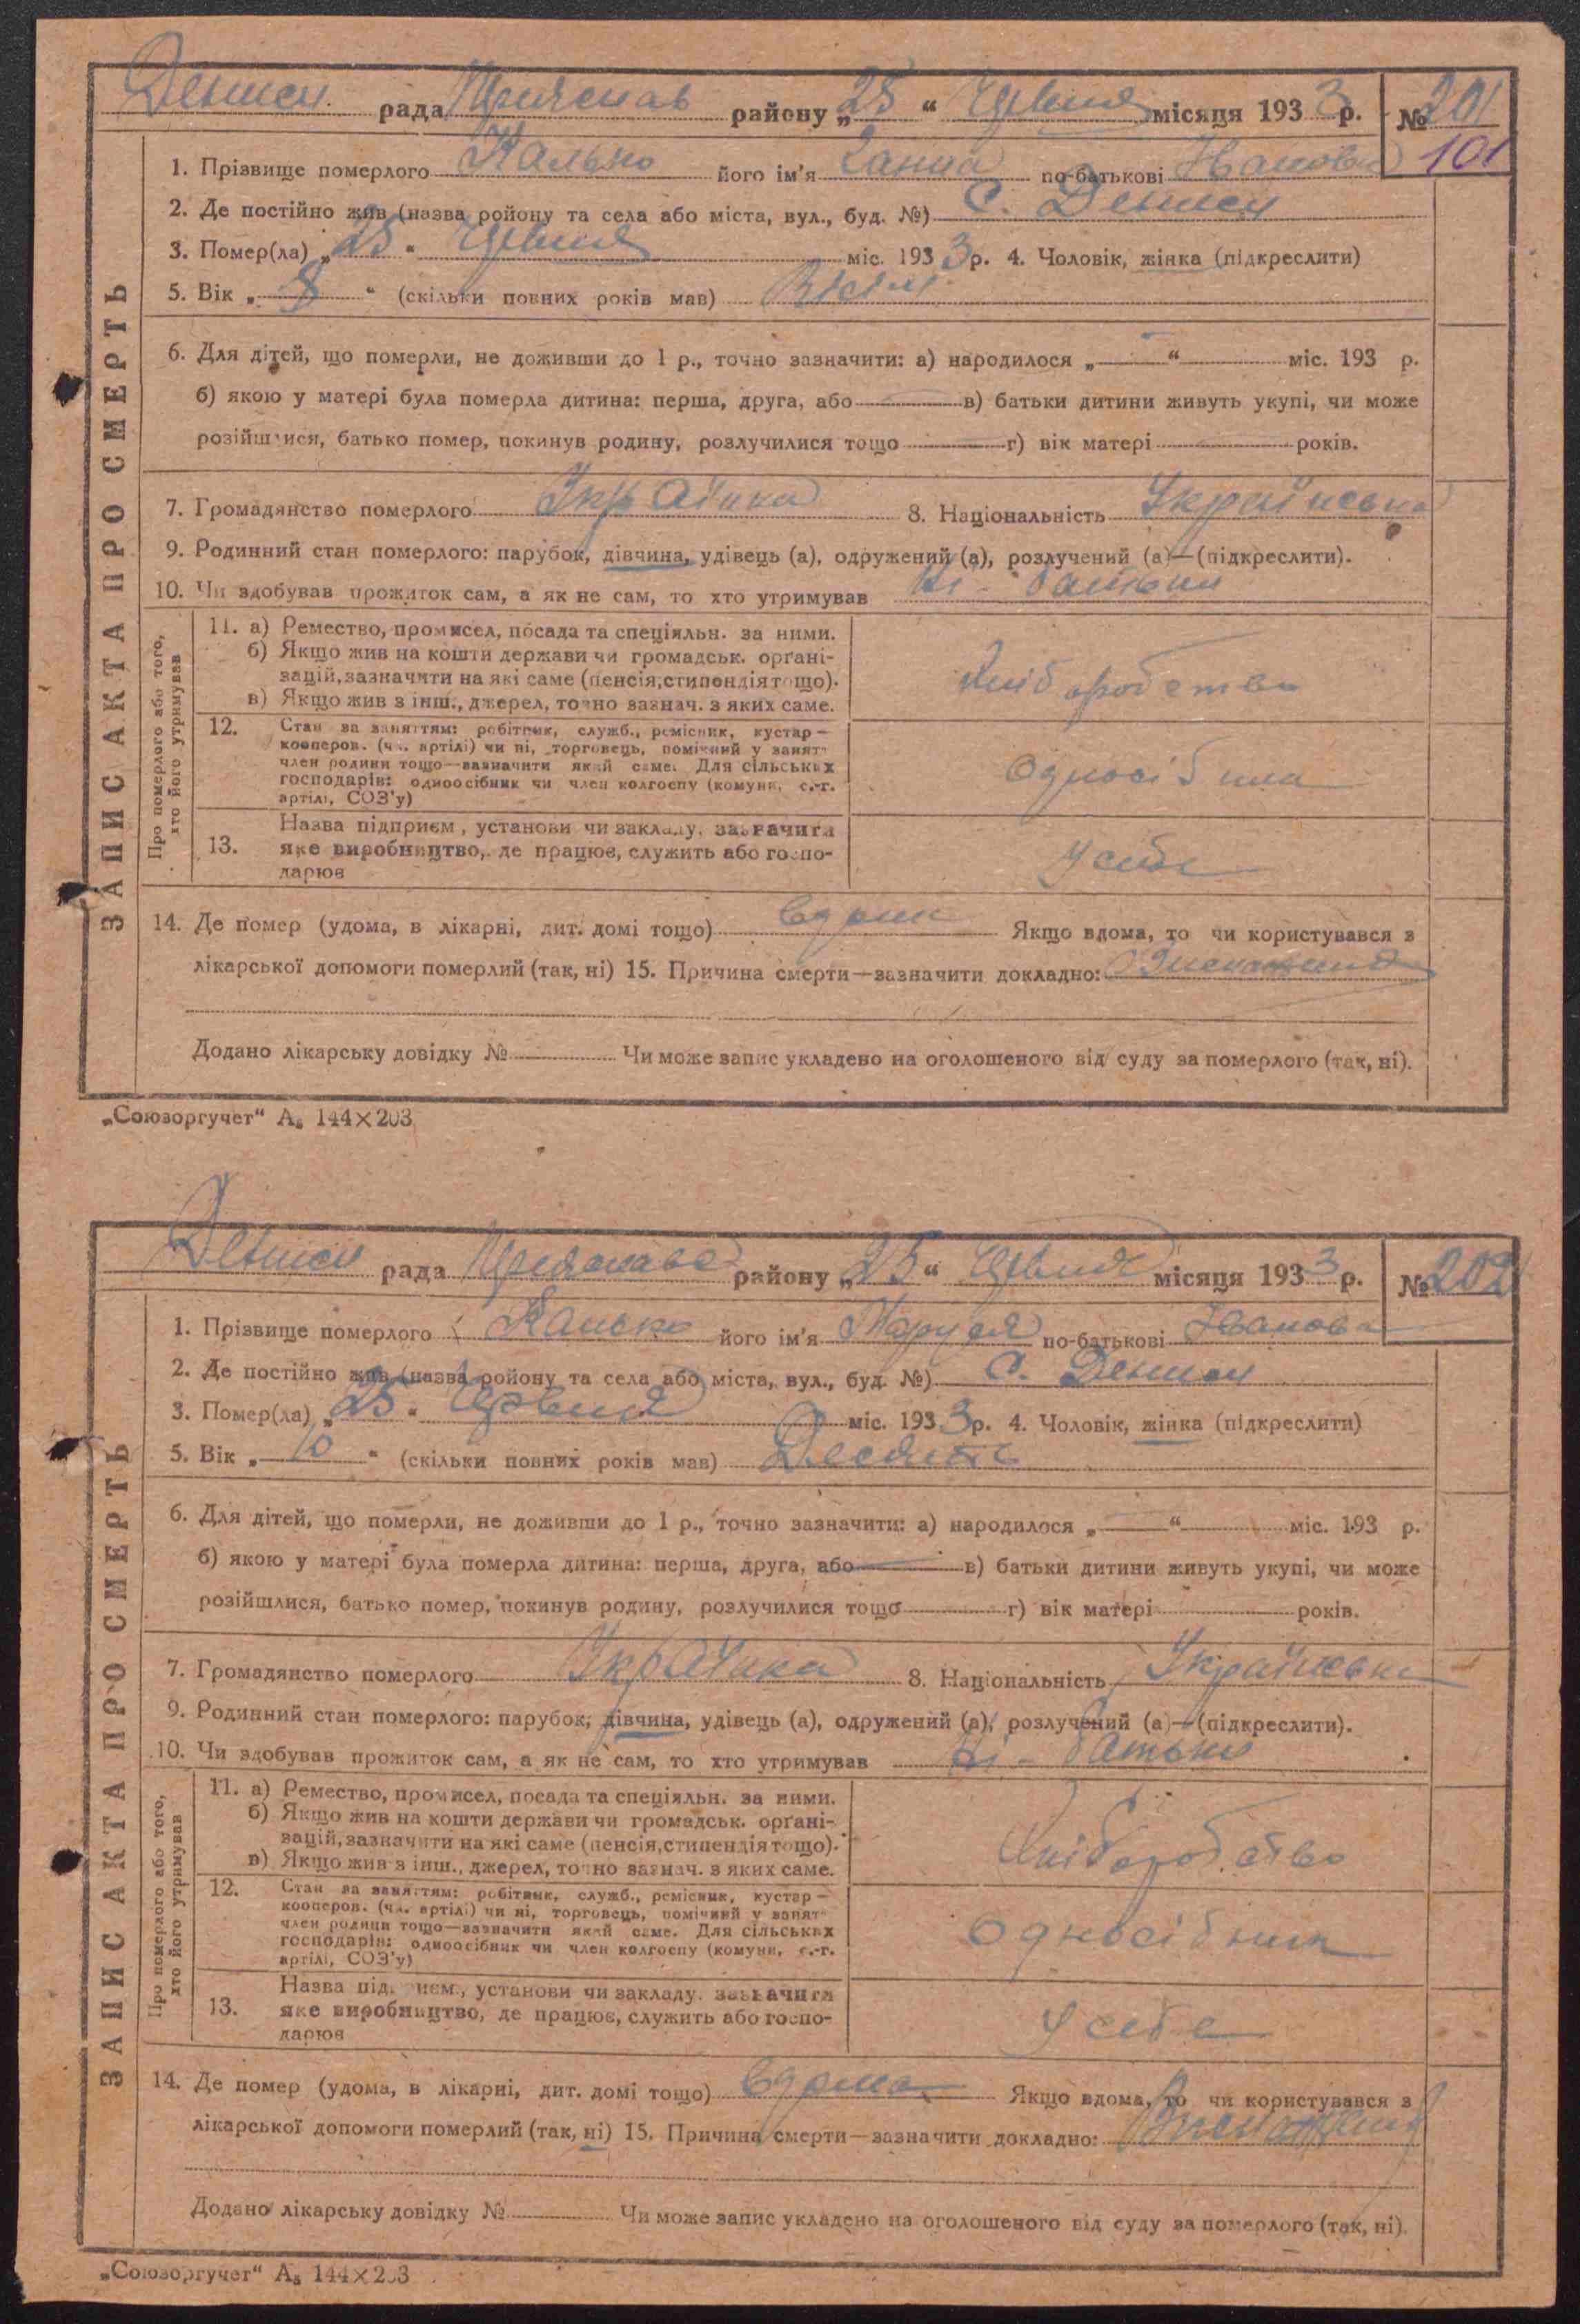 Дениси рада Переяслав району „25“ Червня місяця 1933 р. № 201
101
1. Прізвище померлого його ім'я Ганна по-батькові Іванова
2. Де постійно жив (назва ройону та села або міста, вул., буд. №) С. Дениси
3. Помер(ла) „25“ Червня міс. 1933 р. 4. Чоловік, жінка (підкреслити)
5. Вік „8“ (скільки повних років мав) Вісім
6. Для дітей, що померли, не доживши до 1 р., точно зазначити: а) народилося „—“ міс. 193 р.
б) якою у матері була померла дитина: перша, друга, або — в) батьки дитини живуть укупі, чи може
розійшлися, батько помер, покинув родину, розлучилися тощо — г) вік матері — років.
7. Громадянство померлого Україника 8. Національність Українська
9. Родинний стан померлого: парубок, дівчина, удівець (а), одружений (а), розлучений (а)—(підкреслити).
10. Чи здобував прожиток сам, а як не сам, то хто утримував Ні - батьки
ЗАПИС АКТА ПРО СМЕРТЬ
Про померлого або того, хто його утримував
11. а) Ремество, промисел, посада та спеціяльн. за ними.
б) Якщо жив на кошти держави чи громадськ. орґані-
зацій, зазначити на які саме (пенсія, стипендія тощо).
в) Якщо жив з інш., джерел, точно зазнач. з яких саме.
Хліборобство
12. Стан за заняттям: робітник, служб., ремісник, кустар —
кооперов. (чл. артілі) чи ні, торговець, помічний у занят-
член родини тощо—вазначити який саме. Для сільських
господарів: одноосібник чи член колгоспу (комуни, с.-г.
артілі, СОЗ'у)
Односібник
13. Назва підприєм., установи чи закладу. зазначити
яке виробництво, де працює, служить або госпо-
дарює
У себе
14. Де помер (удома, в лікарні, дит. домі тощо) Вдома Якщо вдома, то чи користувався з
лікарської допомоги померлий (так, ні) 15. Причина смерти—зазначити докладно: Виснаження
Додано лікарську довідку № Чи може запис укладено на оголошеного від суду за померлого (так, ні).
„Союзоргучет“ А₅ 144×203
Дениси рада Переяслав району „25“ Червня місяця 1933 р. № 202
1. Прізвище померлого його ім'я Маруся по-батькові Іванова
2. Де постійно жив (назва ройону та села або міста, вул., буд. №) С. Дениси
3. Помер(ла) „25“ Червня міс. 1933 р. 4. Чоловік, жінка (підкреслити)
5. Вік „10“ (скільки повних років мав) Десять
6. Для дітей, що померли, не доживши до 1 р., точно зазначити: а) народилося „—“ міс. 193 р.
б) якою у матері була померла дитина: перша, друга, або — в) батьки дитини живуть укупі, чи може
розійшлися, батько помер, покинув родину, розлучилися тощо — г) вік матері — років.
7. Громадянство померлого Україника 8. Національність Українська
9. Родинний стан померлого: парубок, дівчина, удівець (а), одружений (а), розлучений (а)—(підкреслити).
10. Чи здобував прожиток сам, а як не сам, то хто утримував Ні - батьки
ЗАПИС АКТА ПРО СМЕРТЬ
Про померлого або того, хто його утримував
11. а) Ремество, промисел, посада та спеціяльн. за ними.
б) Якщо жив на кошти держави чи громадськ. орґані-
зацій, зазначити на які саме (пенсія, стипендія тощо).
в) Якщо жив з інш., джерел, точно зазнач. з яких саме.
Хліборобство
12. Стан за заняттям: робітник, служб., ремісник, кустар —
кооперов. (чл. артілі) чи ні, торговець, помічний у занят-
член родини тощо—вазначити який саме. Для сільських
господарів: одноосібник чи член колгоспу (комуни, с.-г.
артілі, СОЗ'у)
Односібник
13. Назва підприєм., установи чи закладу. зазначити
яке виробництво, де працює, служить або госпо-
дарює
У себе
14. Де помер (удома, в лікарні, дит. домі тощо) Вдома Якщо вдома, то чи користувався з
лікарської допомоги померлий (так, ні) 15. Причина смерти—зазначити докладно: Виснаження
Додано лікарську довідку № Чи може запис укладено на оголошеного від суду за померлого (так, ні).
„Союзоргучет“ А₅ 144×203